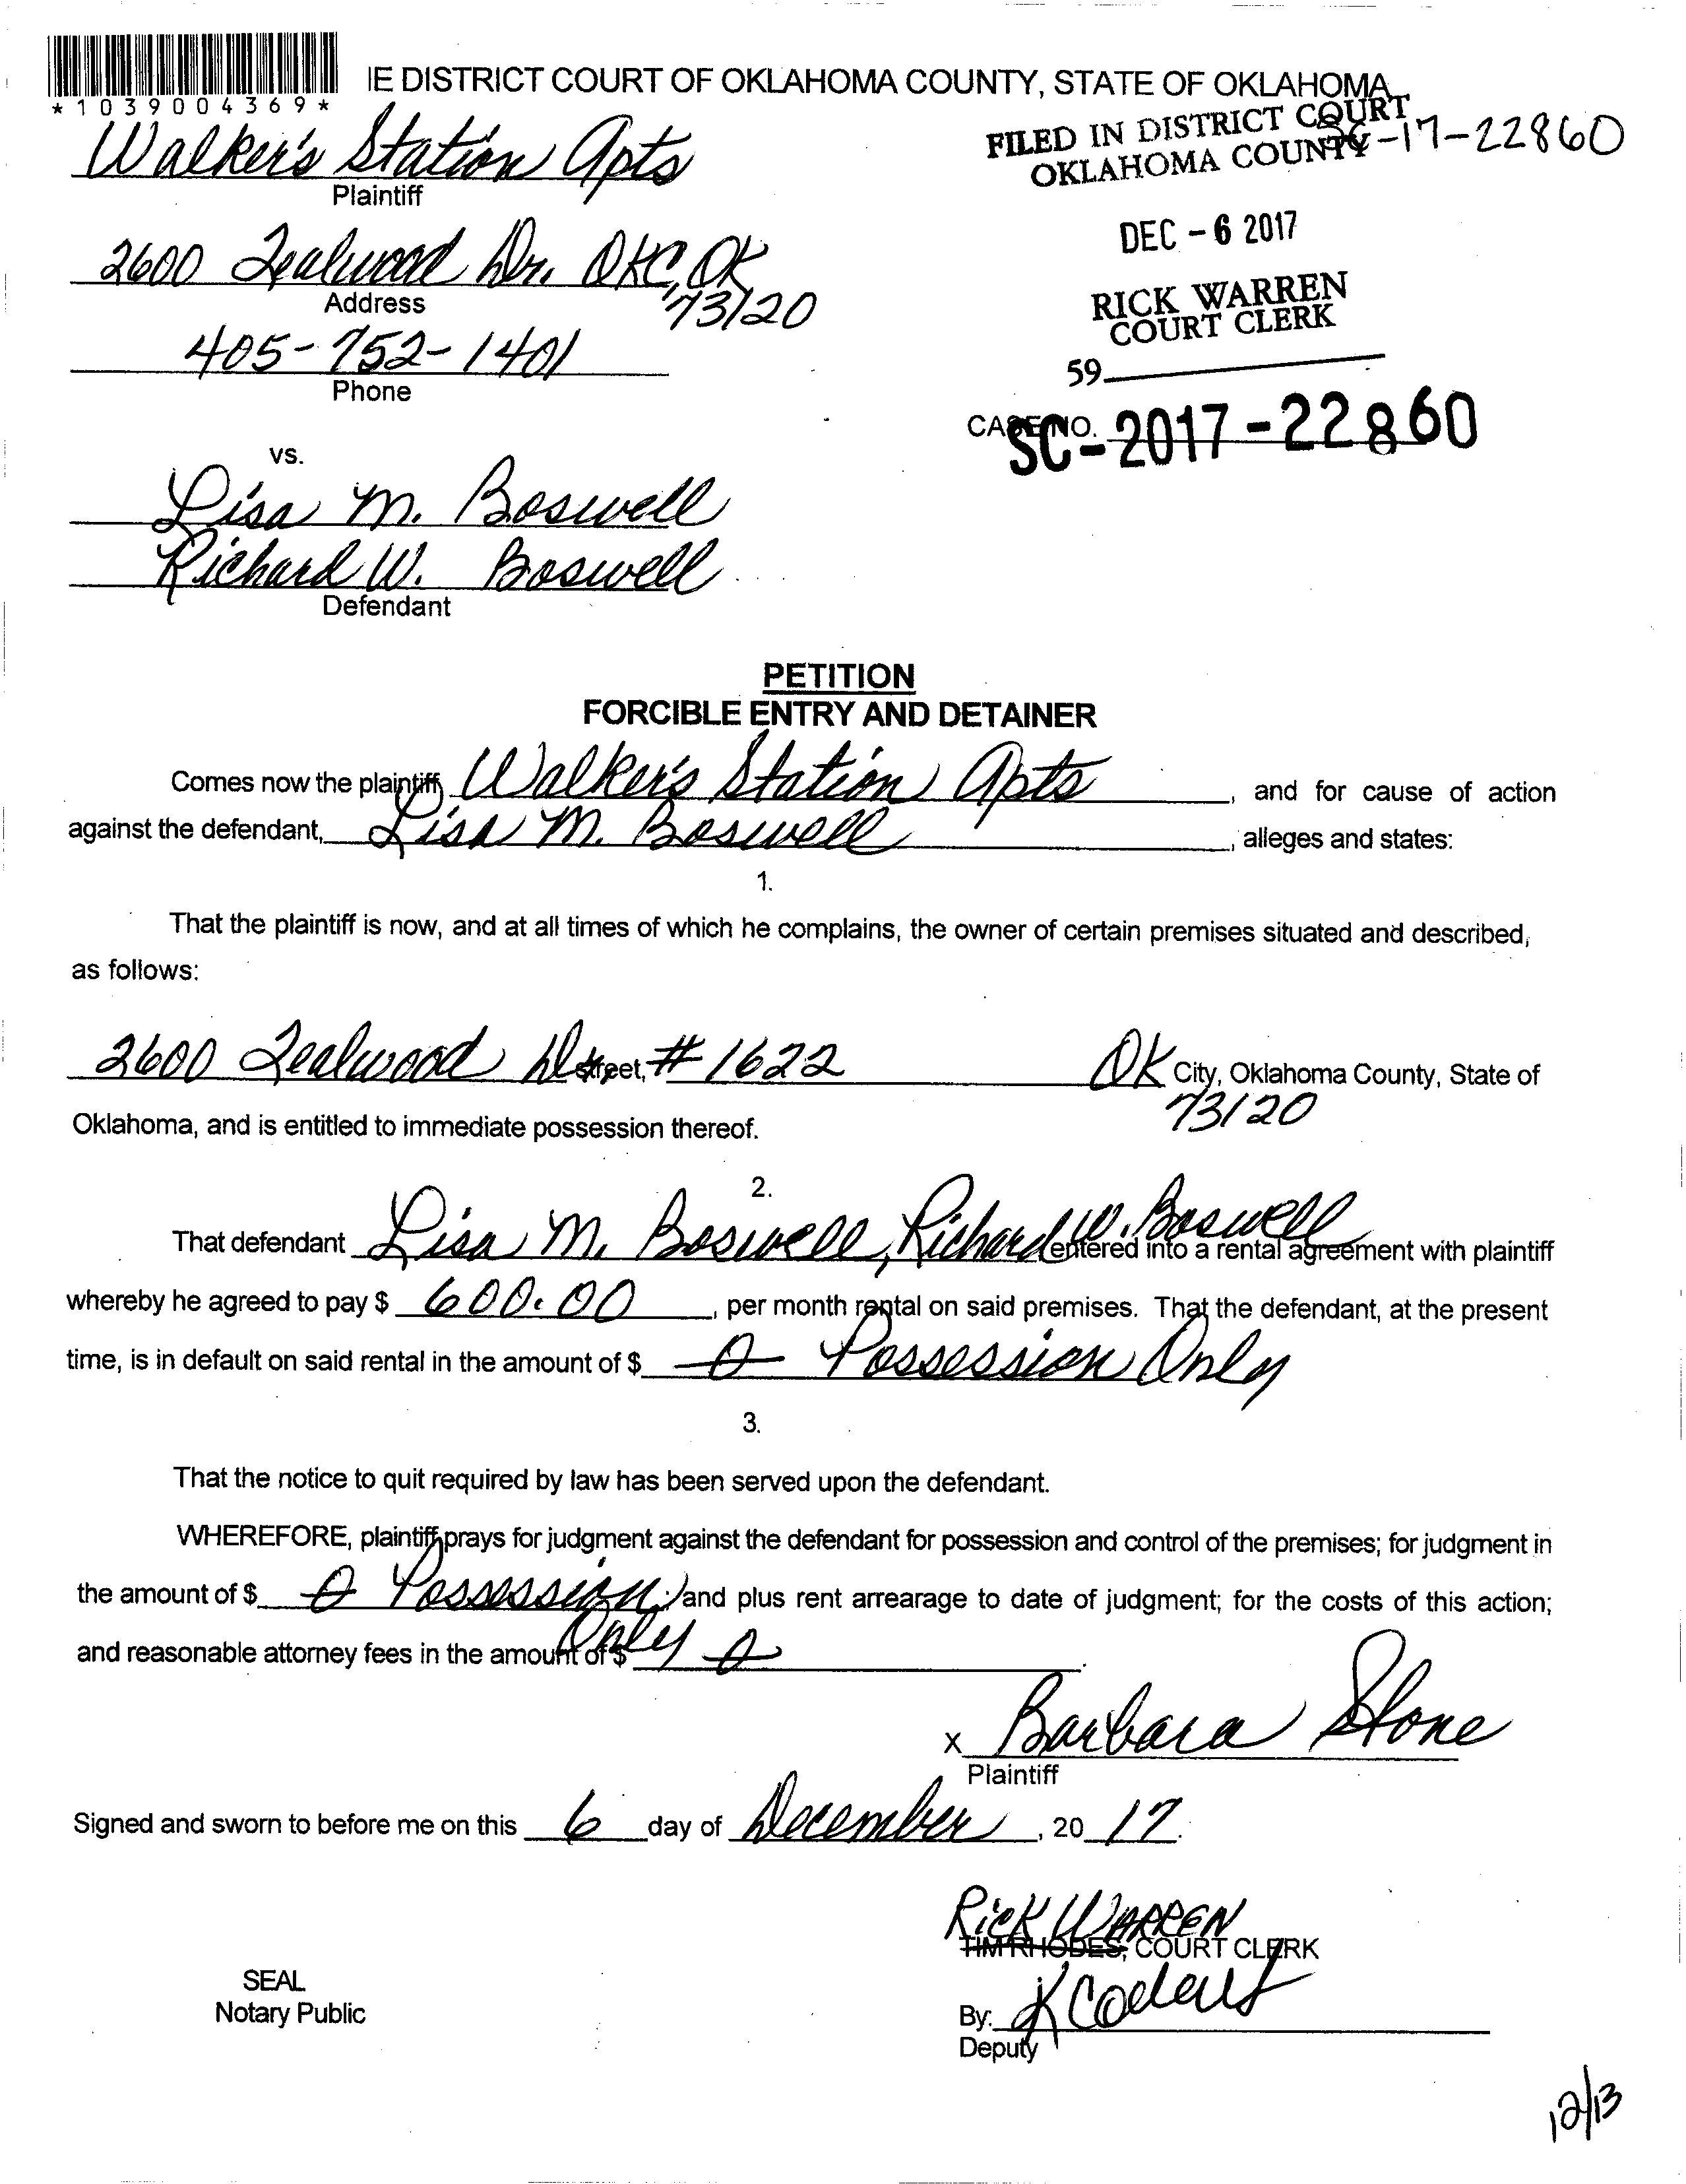 IE DISTRICT COURT OF OKLAHOMA COUNTY, STATE OF OKLAHOMA
*1039004369*
FILED IN DISTRICT COURT
OKLAHOMA COUNTY
SC-17-22860
Walker's Station Apts
Plaintiff
DEC - 6 2017
2600 Tealwood Dr. OKC, OK
73120
Address
RICK WARREN
COURT CLERK
405-752-1401
Phone
59
CASE NO. SC-2017-22860
vs.
Lisa M. Boswell
Richard W. Boswell
Defendant
PETITION
FORCIBLE ENTRY AND DETAINER
Comes now the plaintiff, Walker's Station Apts, and for cause of action
against the defendant, Lisa M. Boswell, alleges and states:
1.
That the plaintiff is now, and at all times of which he complains, the owner of certain premises situated and described,
as follows:
2600 Tealwood Dr street, # 1622 OK City, Oklahoma County, State of
73120
Oklahoma, and is entitled to immediate possession thereof.
2.
That defendant Lisa M. Boswell, Richard W. Boswell entered into a rental agreement with plaintiff
whereby he agreed to pay $ 600.00, per month rental on said premises. That the defendant, at the present
time, is in default on said rental in the amount of $ 0 Possession Only
3.
That the notice to quit required by law has been served upon the defendant.
WHEREFORE, plaintiff prays for judgment against the defendant for possession and control of the premises; for judgment in
the amount of $ 0 Possession Only; and plus rent arrearage to date of judgment; for the costs of this action;
and reasonable attorney fees in the amount of $ 0.
x Barbara Stone
Plaintiff
Signed and sworn to before me on this 6 day of December, 20 17.
Rick WARREN
TIM RHODES, COURT CLERK
SEAL
Notary Public
By:
Deputy
12/13